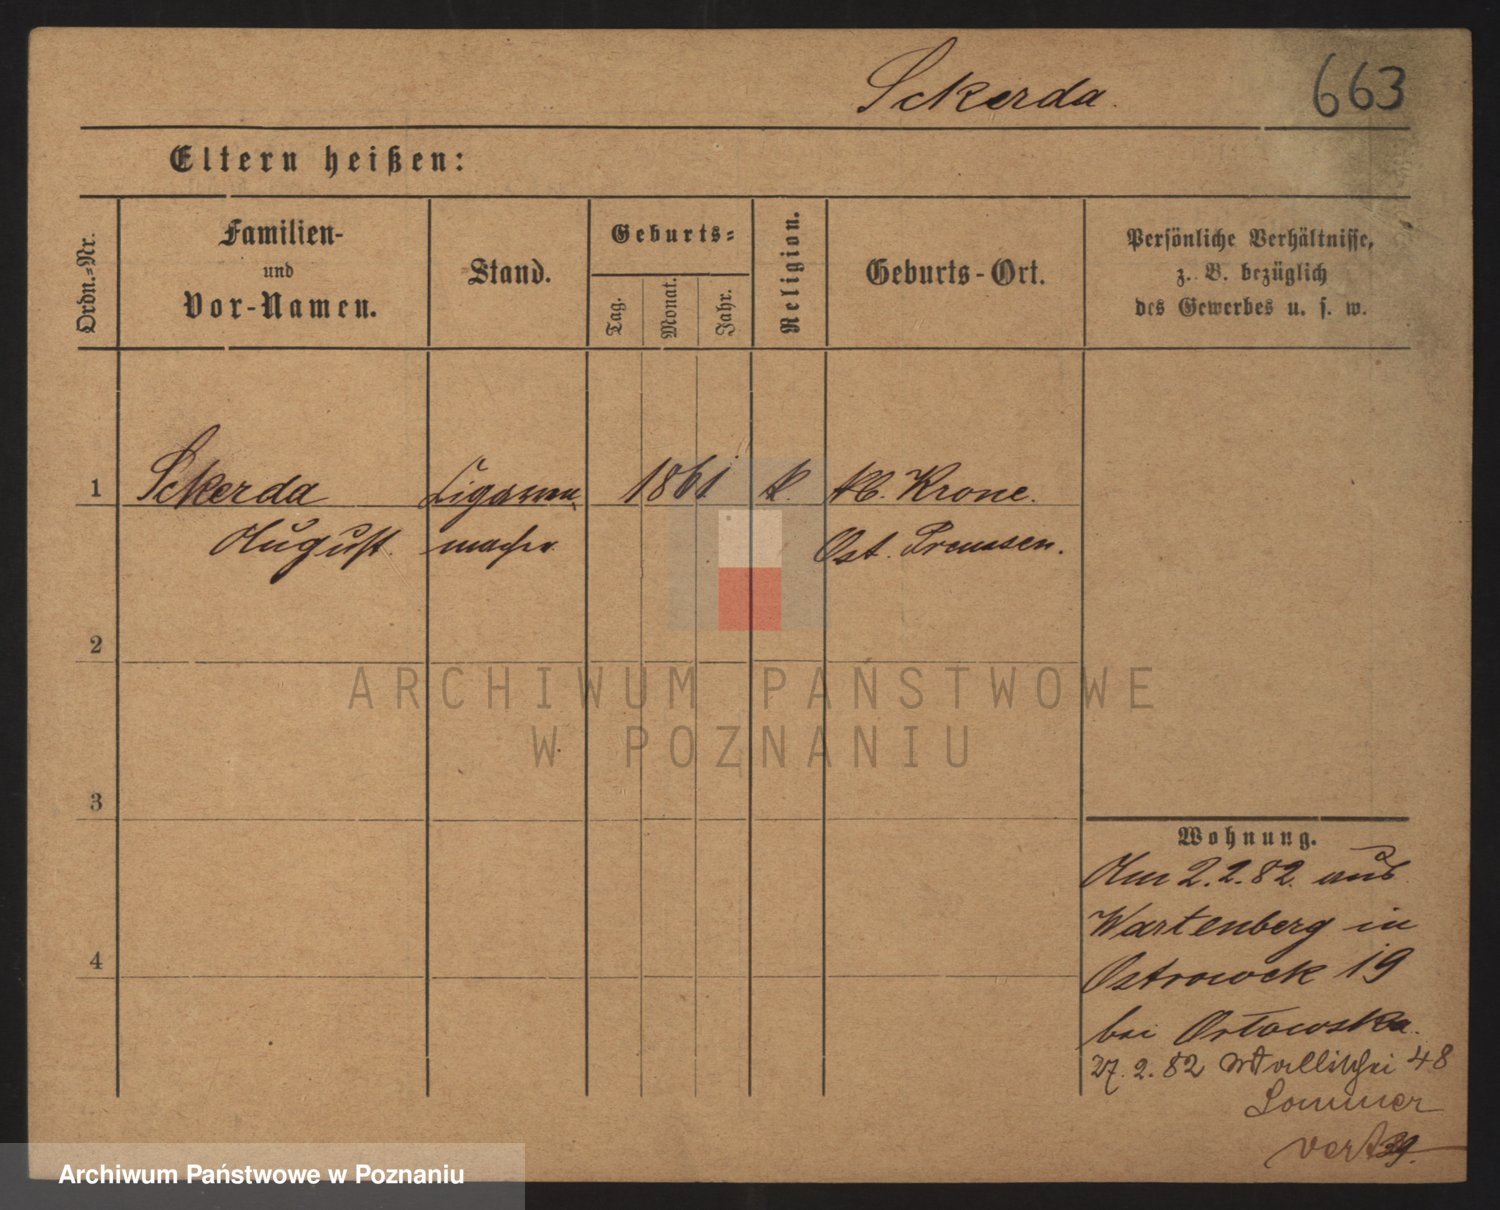 Sckerda.
663
Eltern heißen:
Ordn.-Nr.
Familien-
und
Vor-Namen.
Stand.
Geburts-
Tag.
Monat.
Jahr.
Religion.
Geburts-Ort.
Persönliche Verhältnisse,
z. B. bezüglich
des Gewerbes u. s. w.
1
Sckerda
August.
Cigarren
macher
1861
k.
Krone.
Ost. Preussen.
2
3
4
ARCHIWUM PAŃSTWOWE
W POZNANIU
Wohnung.
Am 2.2.82. aus
Wartenberg in
Ostrowek 19
bei Orłowska.
27.2.82 Wallischei 48
Sommer
Archiwum Państwowe w Poznaniu